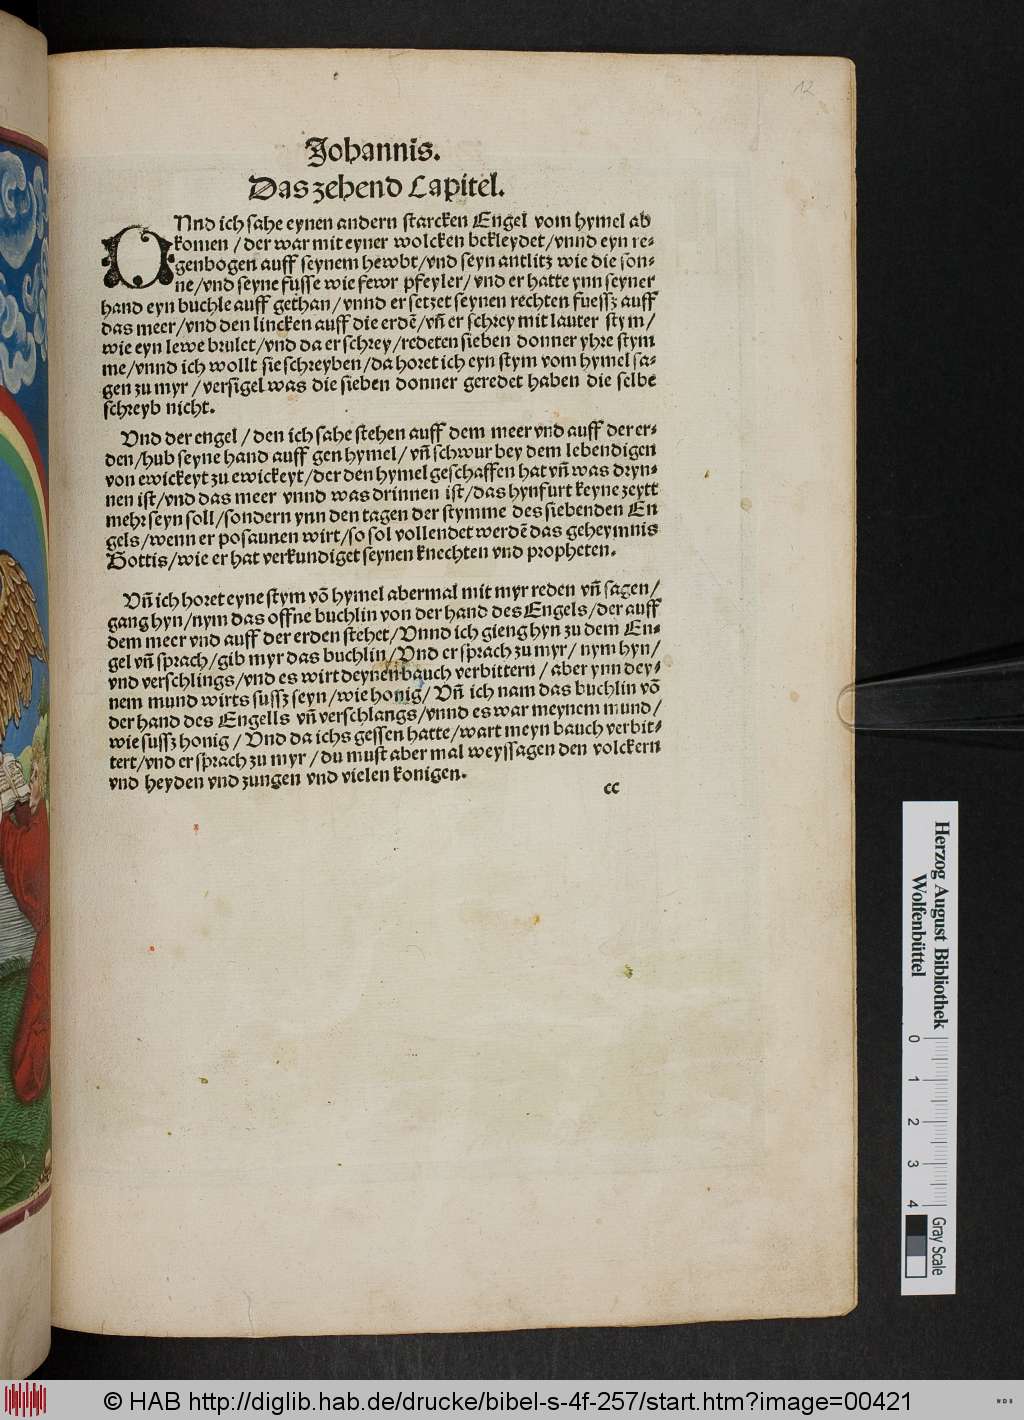 12
Johannis.
Das zehend Capitel.
VNnd ich sahe eynen andern starcken Engel vom hymel ab
komen / der war mit eyner wolcken bekleydet / vnnd eyn re-
genbogen auff seynem hewbt / vnd seyn antlitz wie die son-
ne / vnd seyne fusse wie fewr pfeyler / vnd er hatte ynn seyner
hand eyn buchle auff gethan / vnnd er setzet seynen rechten fuessz auff
das meer / vnd den lincken auff die erdē / vn̄ er schrey mit lauter stym /
wie eyn lewe brulet / vnd da er schrey / redeten sieben donner yhre stym
me / vnnd ich wollt sie schreyben / da horet ich eyn stym vom hymel sa-
gen zu myr / versigel was die sieben donner geredet haben die selbe
schreyb nicht.
Vnd der engel / den ich sahe stehen auff dem meer vnd auff der er-
den / hub seyne hand auff gen hymel / vn̄ schwur bey dem lebendigen
von ewickeyt zu ewickeyt / der den hymel geschaffen hat vn̄ was dryn-
nen ist / vnd das meer vnnd was drinnen ist / das hynfurt keyne zeytt
mehr seyn soll / sondern ynn den tagen der stymme des siebenden En
gels / wenn er posaunen wirt / so sol vollendet werdē das geheymnis
Gottis / wie er hat verkundiget seynen knechten vnd propheten.
Vn̄ ich horet eyne stym vō hymel abermal mit myr reden vn̄ sagen /
gang hyn / nym das offne buchlin von der hand des Engels / der auff
dem meer vnd auff der erden stehet / Vnnd ich gieng hyn zu dem En-
gel vn̄ sprach / gib myr das buchlin / Vnd er sprach zu myr / nym hyn /
vnd verschlings / vnd es wirt deynen bauch verbittern / aber ynn dey-
nem mund wirts sussz seyn / wie honig / Vn̄ ich nam das buchlin vō
der hand des Engells vn̄ verschlangs / vnnd es war meynem mund /
wie sussz honig / Vnd da ichs gessen hatte / wart meyn bauch verbit-
tert / vnd er sprach zu myr / du must aber mal weyssagen den volckern
vnd heyden vnd zungen vnd vielen konigen.
cc
Herzog August Bibliothek
Wolfenbüttel
0 1 2 3 4
Gray Scale
© HAB http://diglib.hab.de/drucke/bibel-s-4f-257/start.htm?image=00421